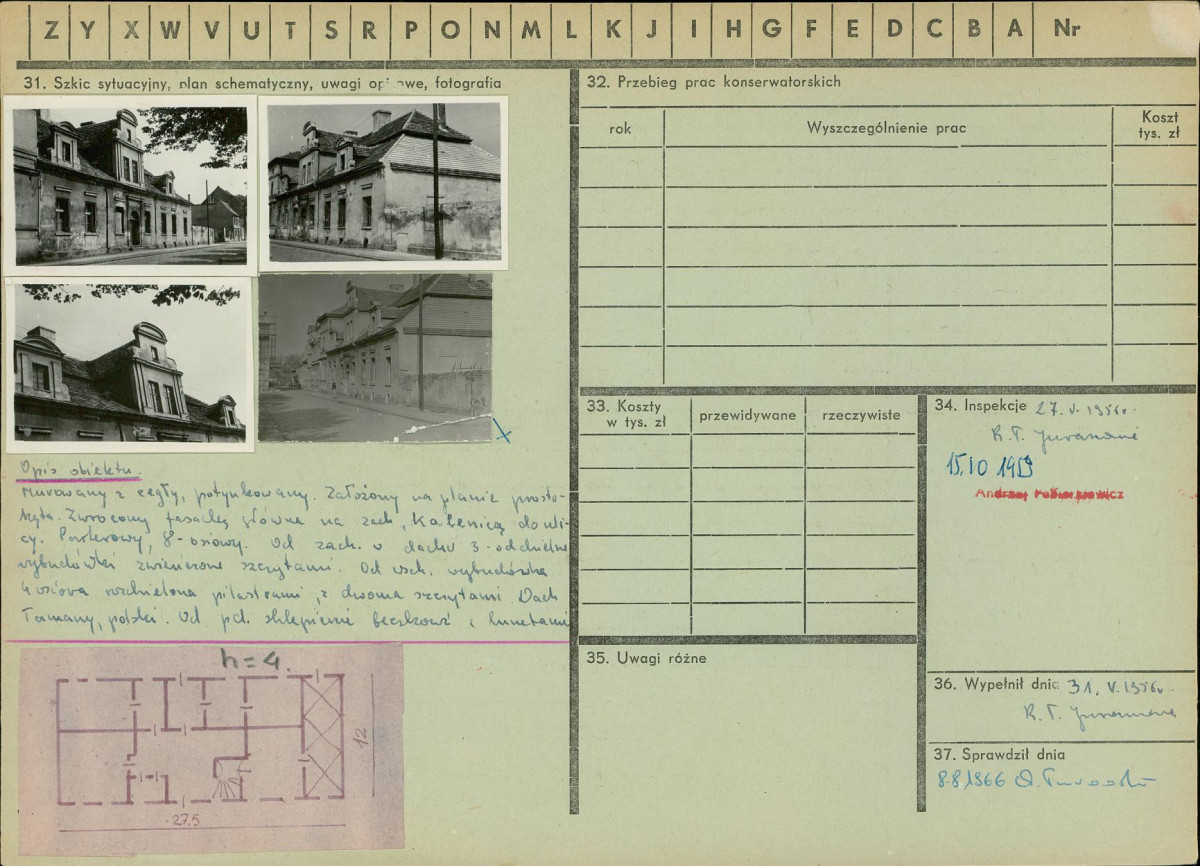 Z Y X W V U T S R P O N M L K J I H G F E D C B A Nr
31. Szkic sytuacyjny, plan schematyczny, uwagi opisowe, fotografia
Opis obiektu.
Murowany z cegły, potynkowany. Założony na planie prosto-
kąta. Zwrócony fasadą główną na zach, Kalenicą do uli-
cy. Parterowy, 8-osiowy. Od zach. w dachu 3-oddzielne
wybudówki zwieńczone szczytami. Od wsch. wybudówka
4 osiowa rozdzielona pilastrami, z dwoma szczytami. Dach
łamany, polski. Od pd. sklepienie beczkowe z lunetami
h=4.
12
27.5
32. Przebieg prac konserwatorskich
rok
Wyszczególnienie prac
Koszt
tys. zł
33. Koszty
w tys. zł
przewidywane
rzeczywiste
34. Inspekcje 27. V. 1956r.
R. T.
15.10 1959
Andrzej
35. Uwagi różne
36. Wypełnił dnia 31. V. 1956r.
R. T.
37. Sprawdził dnia
8.8.1966